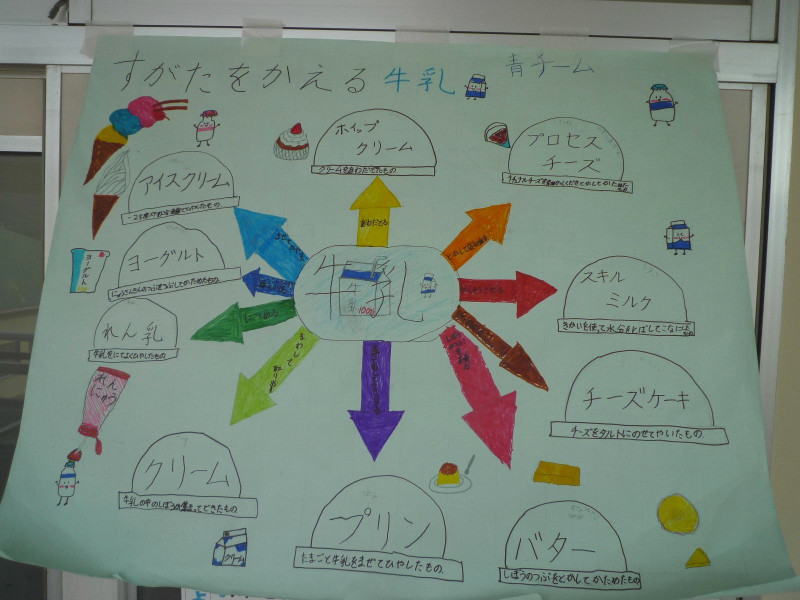 すがたをかえる牛乳
青チーム
ホイップ
クリーム
クリームをあわだてたもの
プロセス
チーズ
アイスクリーム
ヨーグルト
ヨーグルト
れん乳
牛乳をにてよくひやしたもの
れん
にゅう
クリーム
牛乳の中のしぼうが集まってできたもの
クリーム
プリン
たまごと牛乳をまぜてひやしたもの
バター
しぼうのつぶをとかしてかためたもの
チーズケーキ
チーズをタルトにのせてやいたもの
スキル
ミルク
きかいを使って水分をとばしてこなにしたもの
牛乳
あわだてる
につめる
まわして
取り出す